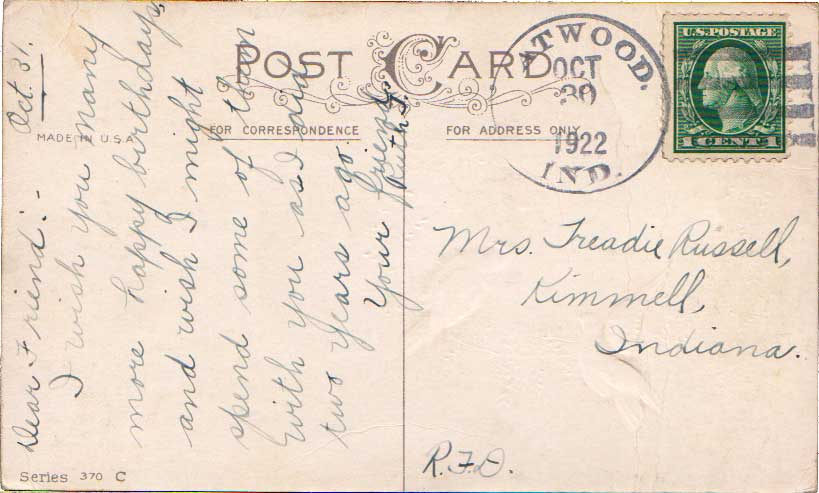 POST CARD
MADE IN U.S.A.
FOR CORRESPONDENCE
FOR ADDRESS ONLY
ATWOOD.
OCT
30
1922
IND.
U.S. POSTAGE
1 CENT 1
Oct. 31.
Dear Friend:-
I wish you many
more happy birthdays,
and wish I might
spend some of them
with you as I did
two years ago.
Your friend
Ruth
Mrs. Treadie Russell,
Kimmell,
Indiana.
R.F.D.
Series 370 C